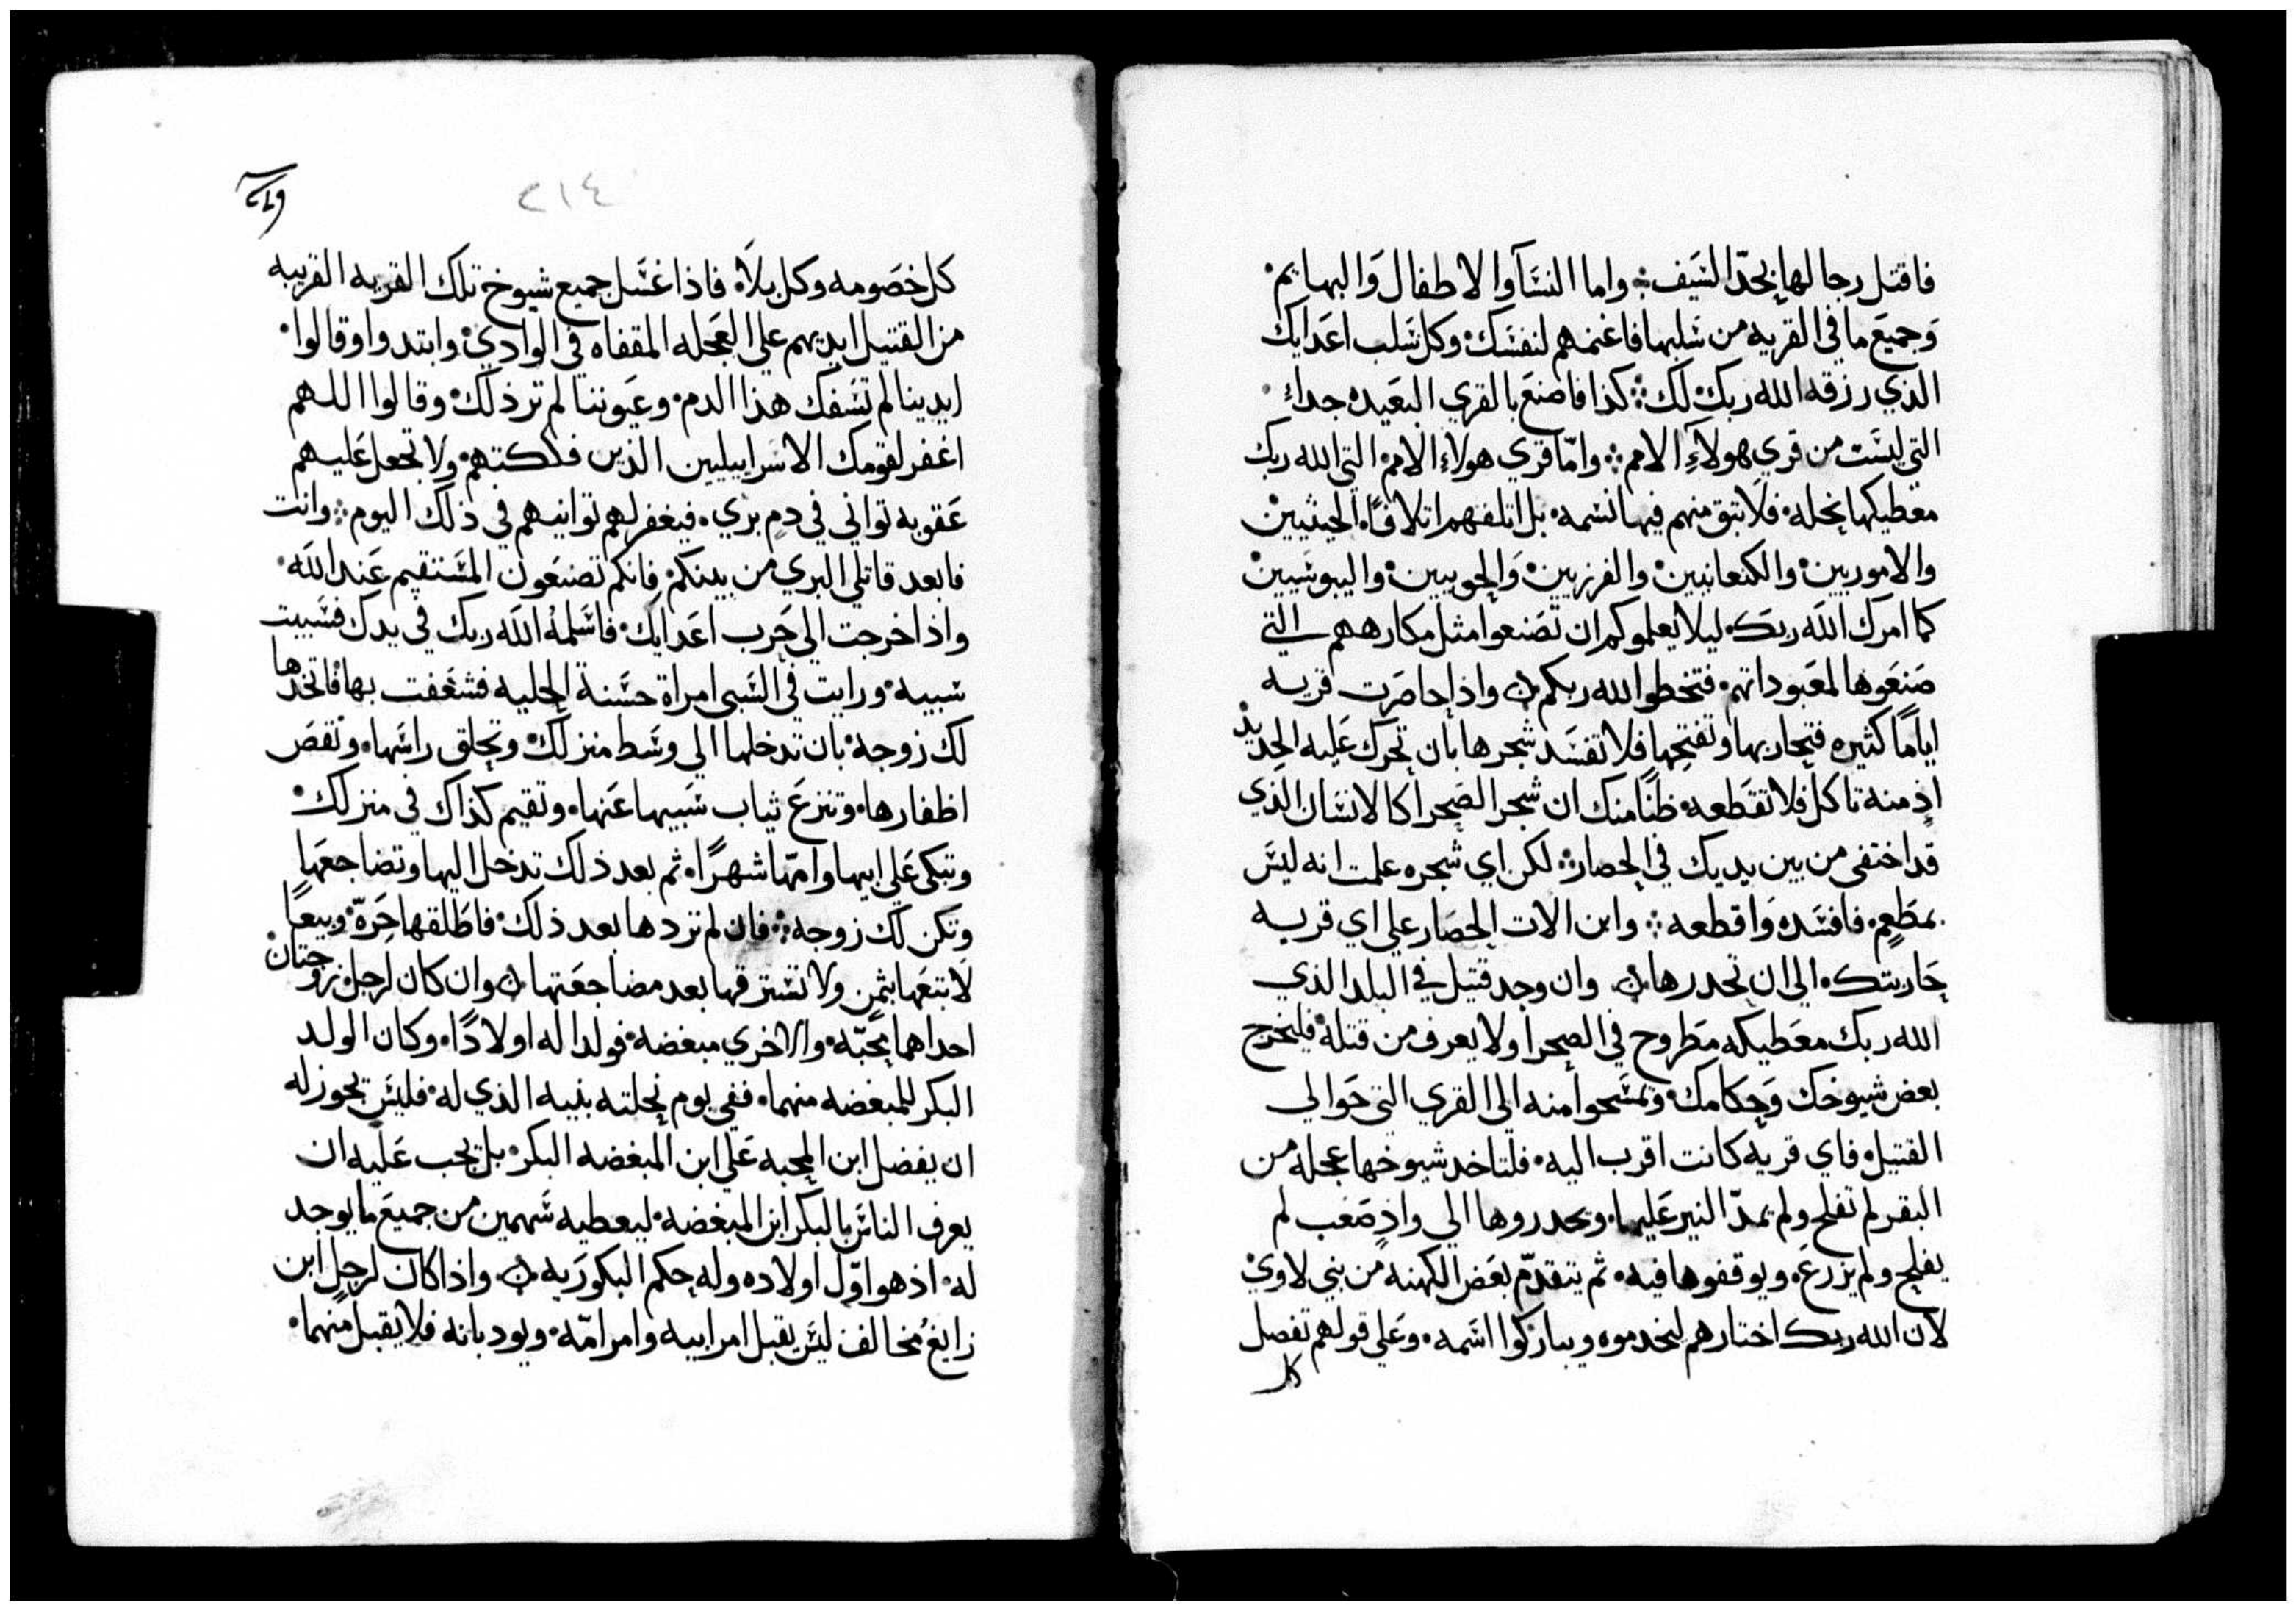 فاقتل رجالها بحدّ السَيف܀ واما النسَآ والاطفال وَالبهايم܁
وَجميعَ ما في القريه من سَلبها فاغنمهم لنفسَك܁ وكل سَلب اعَدايك
الذي رزقه الله ربك لك܀ كذا فاصنعَ بالقري البَعَيده جداً܁
التي ليسَت من قري هولآءِ الامم܀ وامّا قري هولاءِ الامم܁ التي الله ربك
معَطيكها نحله܁ فلا تبق منهم فيها نسَمه܁ بل اتلفهم اتلافًا܁ الحيثيين
والاموريين܁ والكنعانيين܁ والفرزيين܁ وَالحويين܁ واليبوسَيين܁
كما امرك الله ربك܁ ليلا يعلموكم ان تصَنعوا مثل مكارههم التي
صَنعَوها لمعَبوداتهم܁ فتخطوا لله ربكم܀ واذا حاصَرت قريه
ايامًا كثيره فتحاربها وتفتحها فلا تفسَد شجرها بان تحرك عَليه الحديد
اذ منه تاكل فلا تقطَعه܁ ظنًا منك ان شجر الصَحرا كالانسَان الذي
قد اختفى من بين يديك في الحصار܀ لكن اي شجره علمت انه ليسَ
بمطَعم܁ فافسَده وَاقطعه܀ وابن الات الحصَار علي اي قريه
حَاربتك܁ الى ان تحدرها܀ وان وجد قتيل في البلد الذي
الله ربك معَطيكه مطَروح في الصحرا ولا يعرف من قتله܁ فليخرج
بعض شيوخك وَحكامك܁ وتمسَحوا منه الى القري التي حَوالي
القتيل܁ فاي قريه كانت اقرب اليه܁ فلتاخد شيوخها عجله من
البقر لم تفلح ولم يمدّ النير عَليها܁ ويحدروها الي وادٍ صَعب لم
يفلح ولم يزرعَ܁ ويوقفوها فيه܁ ثم يتقدّم بعَض الكهنه من بني لاوي܁
لان الله ربك اختارهم ليخدموه ويباركوا اسَمه܁ وعَلي قولهم تفصل
كل
٢١٤
كل خصَومه وكل بلآ܁ فاذا غسَل جميع شيوخ تلك القريه القريبه
من القتيل ايديهم علي العَجله المقفاه في الوادي܁ وابتدوا وقالوا܁
ايدينا لم تسَفك هذا الدم܁ وعَيوننا لم تر ذلك܁ وقالوا اللهم
اغفر لقومك الاسَراييليين الذين فككتهم܁ ولا تجعل عَليهم
عَقوبه تواني في دمٍ بري܁ فيغفر لهم توانيهم في ذلك اليوم܀ وانت
فابعد قاتلي البري من بينكم܁ فانكم تصَنعَون المسَتقيم عَند الله܁
واذا خرجت الي حَرب اعَدايك܁ فاسَلمهُ الله ربك في يدك فسَبيت
سَبيه܁ ورايت في السَبي امراة حسَنة الحليه فشغَفت بها فاتخدها
لك زوجه܁ بان تدخلها الي وسَط منزلك܁ وتحلق راسَها܁ وتقصَ
اظفارها܁ وتنزعَ ثياب سَبيها عَنها܁ وتقيم كذاك في منزلك܁
وتبكى عَلي ابيها وامّها شهرًا܁ ثم بعد ذلك تدخل اليها وتضاجعَها
وتكن لك زوجه܀ فان لم تردها بعد ذلك܁ فاطَلقها حَرةّ܁ وبيعًا
لا تبَعَها بثمن ولا تسَترقها بعد مضاجعَتها܀ وان كان لرجل زوجتان
احداهما محبّه܁ والاخري مبغضه܁ فولدا له اولادًا܁ وكان الولد
البكر للمبغضه منهما܁ ففي يوم نحلته بنيه الذي له܁ فليسَ يجوز له
ان يفضل ابن المحبه عَلي ابن المبغضه البكر܁ بل يجب عَليه ان
يعرف الناسَ بالبكر ابن المبغضه܁ ليعطيه سَهمين من جميعَ ما يوجد
له܁ اذ هو اوّل اولاده وله حكم البكوريَه܀ واذا كان لرجلٍ ابن
زايغُ مخالف ليسَ يقبل امر ابيه وامر امّه܁ ويودبانه فلا يقبل منهما܁